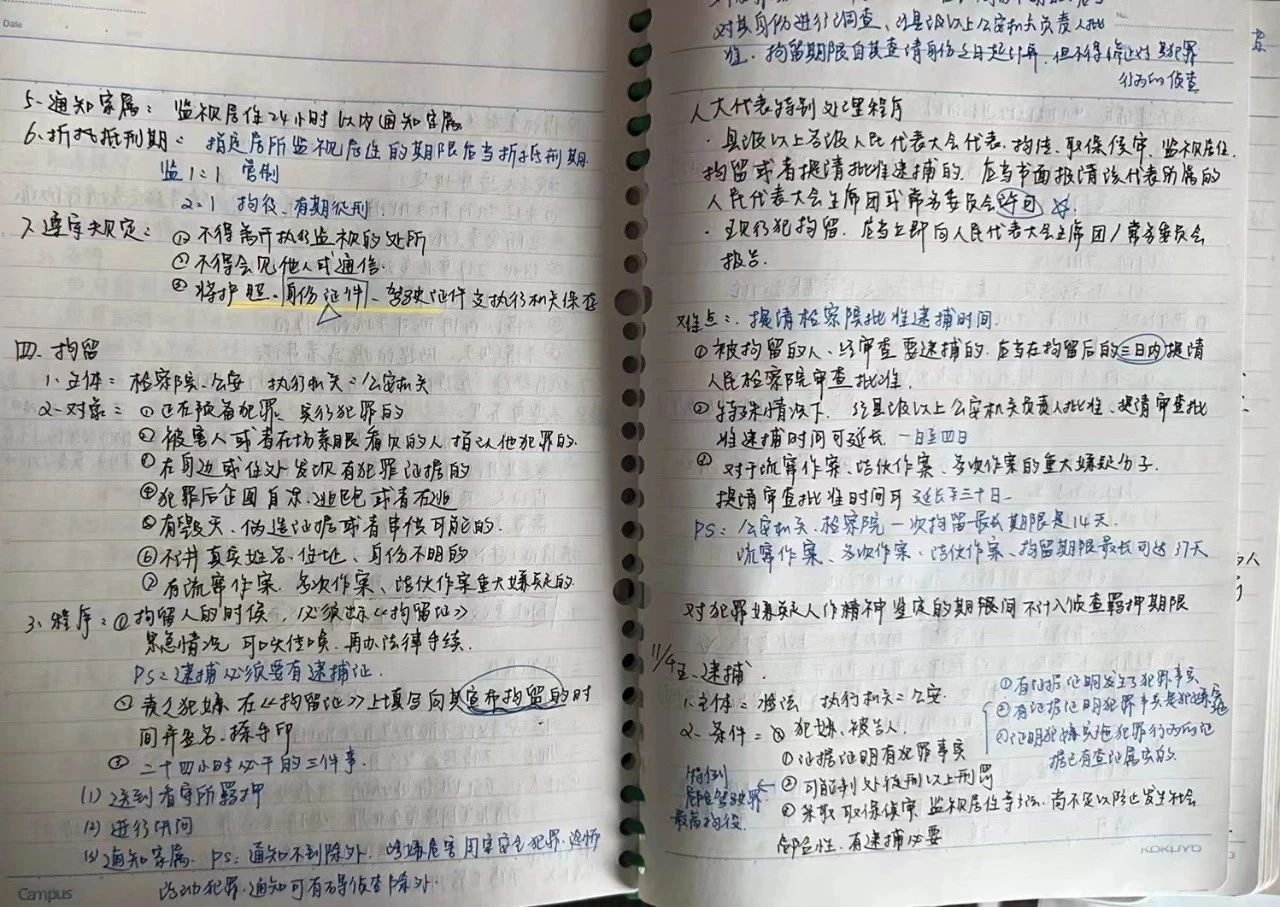 Date
5、通知家属：监视居住24小时以内通知家属
6、折抵刑期：指定居所监视居住的期限应当折抵刑期
监1:1 管制
2:1 拘役、有期徒刑
7、遵守规定：① 不得离开执行监视的处所
② 不得会见他人或通信
③ 将护照、身份证件、驾驶证件交执行机关保存
四、拘留
1、主体：检察院、公安 执行机关：公安机关
2、对象：① 正在预备犯罪、实行犯罪的
② 被害人或者在场亲眼看见的人指认他犯罪的
③ 在身边或住处发现有犯罪证据的
④ 犯罪后企图自杀、逃跑或者在逃
⑤ 有毁灭、伪造证据或者串供可能的
⑥ 不讲真实姓名、住址、身份不明的
⑦ 有流窜作案、多次作案、结伙作案重大嫌疑的
3、程序：① 拘留人的时候，必须出示《拘留证》
紧急情况 可口头传唤，再办法律手续.
PS：逮捕必须要有逮捕证
② 责令犯嫌在《拘留证》上填写向其宣布拘留的时
间并签名、捺手印
③ 二十四小时必干的三件事.
(1) 送到看守所羁押
(2) 进行讯问
(3) 通知家属. PS：通知不到除外. 涉嫌危害国家安全犯罪、恐怖
活动犯罪、通知可有碍侦查除外.
Campus
No.
对其身份进行调查、经县级以上公安机关负责人批
准，拘留期限自其查清身份之日起计算，但不得停止对其犯罪
行为的侦查
人大代表特别处理程序
· 县级以上各级人民代表大会代表，拘传、取保候审、监视居住、
拘留或者提请批准逮捕的，应当书面报请该代表所属的
人民代表大会主席团或常务委员会许可
· 现行犯拘留，应当立即向人民代表大会主席团/常务委员会
报告.
难点：提请检察院批准逮捕时间.
① 被拘留的人、经审查要逮捕的，应当在拘留后的三日内提请
人民检察院审查批准.
② 特殊情况下，经县级以上公安机关负责人批准、提请审查批
准逮捕时间可延长 一日至四日
③ 对于流窜作案、结伙作案、多次作案的重大嫌疑分子.
提请审查批准时间可 延长至三十日
PS：公安机关、检察院一次拘留最长期限是14天.
流窜作案、多次作案、结伙作案、拘留期限最长可达37天
对犯罪嫌疑人作精神鉴定的期限间不计入侦查羁押期限
11/4
五、逮捕.
1、主体：检法 执行机关：公安
2、条件：犯嫌、被告人.
① 证据证明有犯罪事实
② 可能判处徒刑以上刑罚
③ 采取取保候审、监视居住等方法，尚不足以防止发生社会
危险性，有逮捕必要
① 有证据证明发生了犯罪事实
② 有证据证明犯罪事实是犯嫌实施
③ 证明犯嫌实施犯罪行为的证
据已有查证属实的.
特例
危险驾驶罪
最高拘役.
KOKUYO